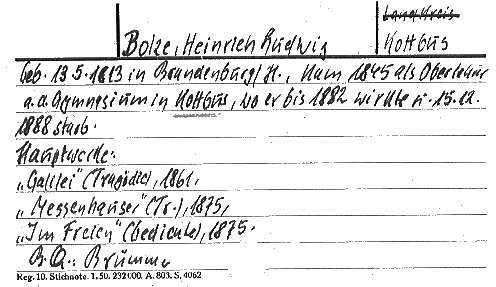 Land Kreis
Bolze, Heinrich Ludwig
Kottbus
Geb. 13.5.1813 in Brandenburg/H., kam 1845 als Oberlehrer
a.d. Gymnasium in Kottbus, wo er bis 1882 wirkte u. 15.12.
1888 starb.
Hauptwerke:
„Galilei" (Tragödie), 1861,
„Messenhauser" (Tr.), 1875,
„Im Freien" (Gedichte), 1875.
B.Q.: Brümmer
Reg. 10. Stichnote. 1. 50. 232000. A. 803. S. 4062